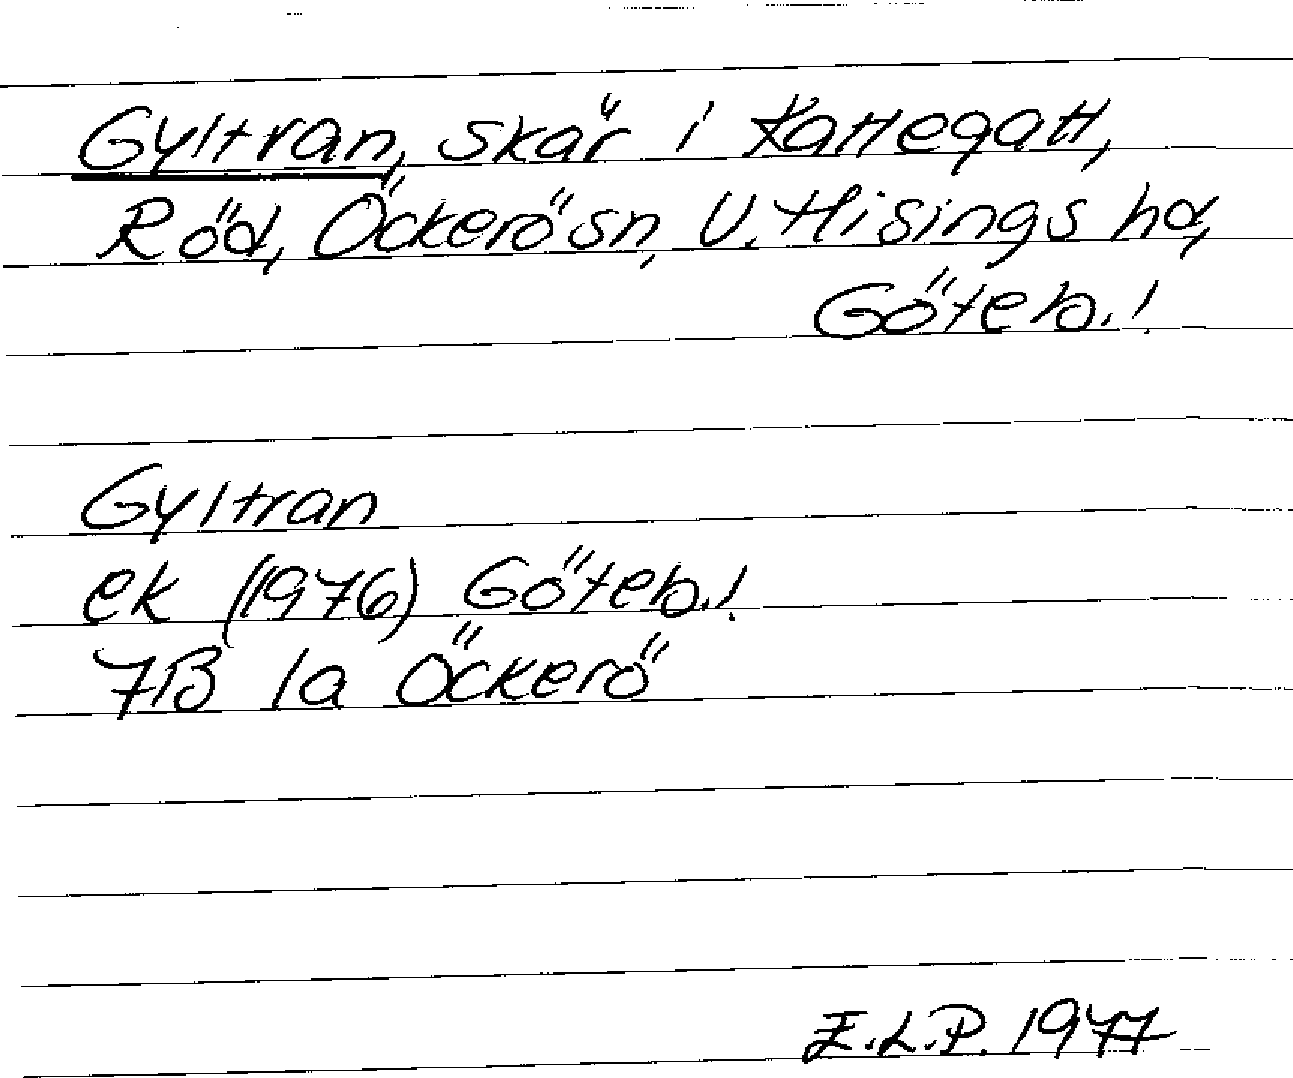 Gyltran, skär i Kattegatt,
Röd, Öckerö sn, V. Hisings hd,
Göteb.!
Gyltran
ek (1976) Göteb.!
7B 1a Öckerö
E.L.P. 1977